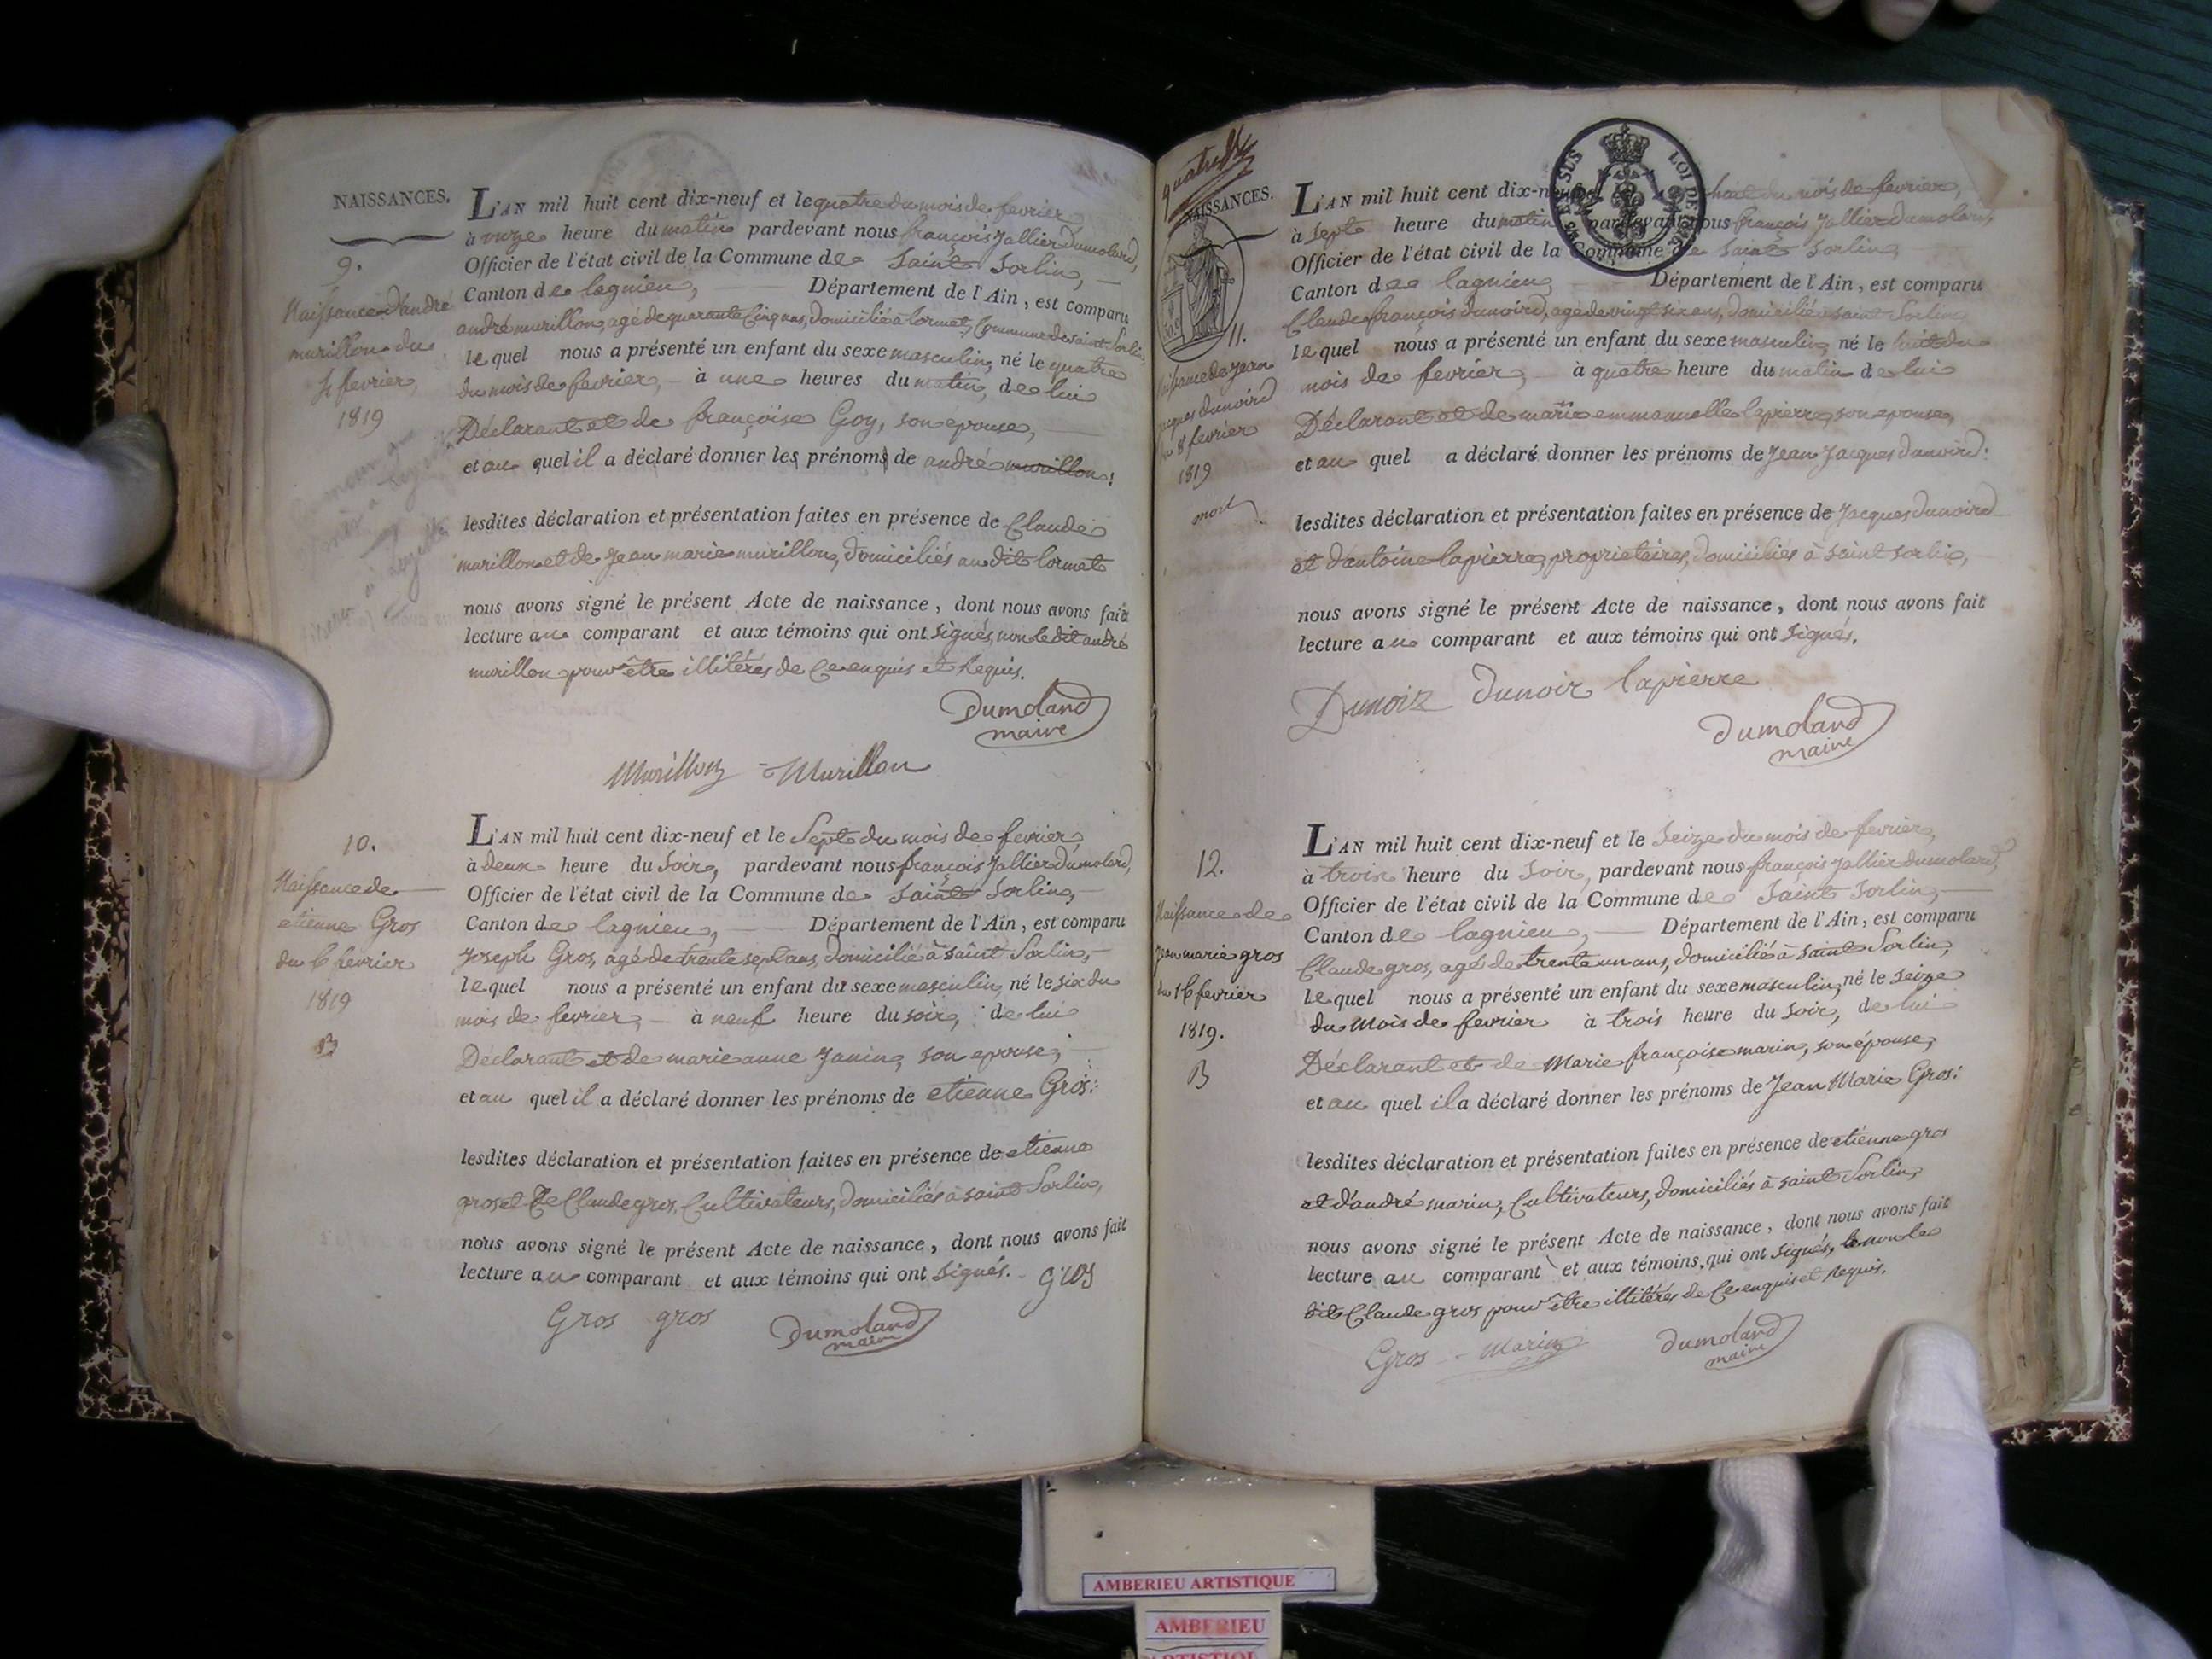 NAISSANCES.
9.
Naissance d'andré
murillon du
4 fevrier
1819
L'AN mil huit cent dix-neuf et le quatre du mois de fevrier
à onze heure du matin pardevant nous françois Jallier Dumolard,
Officier de l'état civil de la Commune de Saint Sorlin,
Canton de lagnieu, Département de l'Ain, est comparu
andré murillon, agé de quarante Cinq ans, domicilié à lormet, Commune de saint Sorlin
lequel nous a présenté un enfant du sexe masculin, né le quatre
du mois de fevrier, à une heures du matin, de lui
Déclarant et de françoise Goy, son épouse,
et au quel il a déclaré donner les prénoms de andré murillon!
lesdites déclaration et présentation faites en présence de Claude
murillon et de Jean marie murillon, domiciliés au dit lormet
nous avons signé le présent Acte de naissance, dont nous avons fait
lecture au comparant et aux témoins qui ont signés, non le dit andré
murillon pour être illitérés de Ce enquis et Requis.
Dumolard
maire
Murillon Murillon
10.
Naissance de
etienne Gros
du 6 fevrier
1819
B
L'AN mil huit cent dix-neuf et le Sept du mois de fevrier,
à deux heure du Soir, pardevant nous françois Jallier Dumolard,
Officier de l'état civil de la Commune de Saint Sorlin,
Canton de lagnieu, Département de l'Ain, est comparu
Joseph Gros, agé de trente sept ans, domicilié à saint Sorlin,
lequel nous a présenté un enfant du sexe masculin, né le six du
mois de fevrier, à neuf heure du soir, de lui
Déclarant et de marie anne Janin, son epouse,
et au quel il a déclaré donner les prénoms de etienne Gros.
lesdites déclaration et présentation faites en présence de etienne
gros et De Claude gros, Cultivateurs, domiciliés à saint Sorlin,
nous avons signé le présent Acte de naissance, dont nous avons fait
lecture au comparant et aux témoins qui ont Signés. gros
Gros gros Dumolard
maire
quatre
NAISSANCES.
11.
Naissance de Jean
Jacques dunoird
du 8 fevrier
1819
mort
L'AN mil huit cent dix-neuf et le huit du mois de fevrier,
à Sept heure du matin pardevant nous françois Jallier dumolard,
Officier de l'état civil de la Commune de Saint Sorlin,
Canton de lagnieu, Département de l'Ain, est comparu
Claude françois dunoird, agé de vingt six ans, domicilié à saint Sorlin
lequel nous a présenté un enfant du sexe masculin, né le huit du
mois de fevrier, à quatre heure du matin de lui
Déclarant et de marie emmanuelle lapierre, son epouse,
et au quel a déclaré donner les prénoms de Jean Jacques dunoird.
lesdites déclaration et présentation faites en présence de Jacques dunoird
et d'antoine lapierre, proprietaires, domiciliés à Saint Sorlin,
nous avons signé le présent Acte de naissance, dont nous avons fait
lecture au comparant et aux témoins qui ont Signés.
Dunoir dunoir lapierre
Dumolard
maire
12.
Naissance de
Jean marie gros
du 16 fevrier
1819.
B
L'AN mil huit cent dix-neuf et le Seize du mois de fevrier,
à trois heure du Soir, pardevant nous françois Jallier dumolard,
Officier de l'état civil de la Commune de Saint Sorlin,
Canton de lagnieu, Département de l'Ain, est comparu
Claude gros, agé de trente un ans, domicilié à Saint Sorlin,
lequel nous a présenté un enfant du sexe masculin, né le seize
du Mois de fevrier à trois heure du Soir, de lui
Déclarant et de Marie françoise marin, son épouse,
et au quel il a déclaré donner les prénoms de Jean Marie Gros.
lesdites déclaration et présentation faites en présence de etienne gros
et d'andré marin, Cultivateurs, domiciliés à saint Sorlin,
nous avons signé le présent Acte de naissance, dont nous avons fait
lecture au comparant et aux témoins, qui ont signés, non le
dit Claude gros pour être illitérés de Ce enquis et Requis.
Gros Marin Dumolard
maire
AMBERIEU ARTISTIQUE
AMBERIEU
ARTISTIQUE